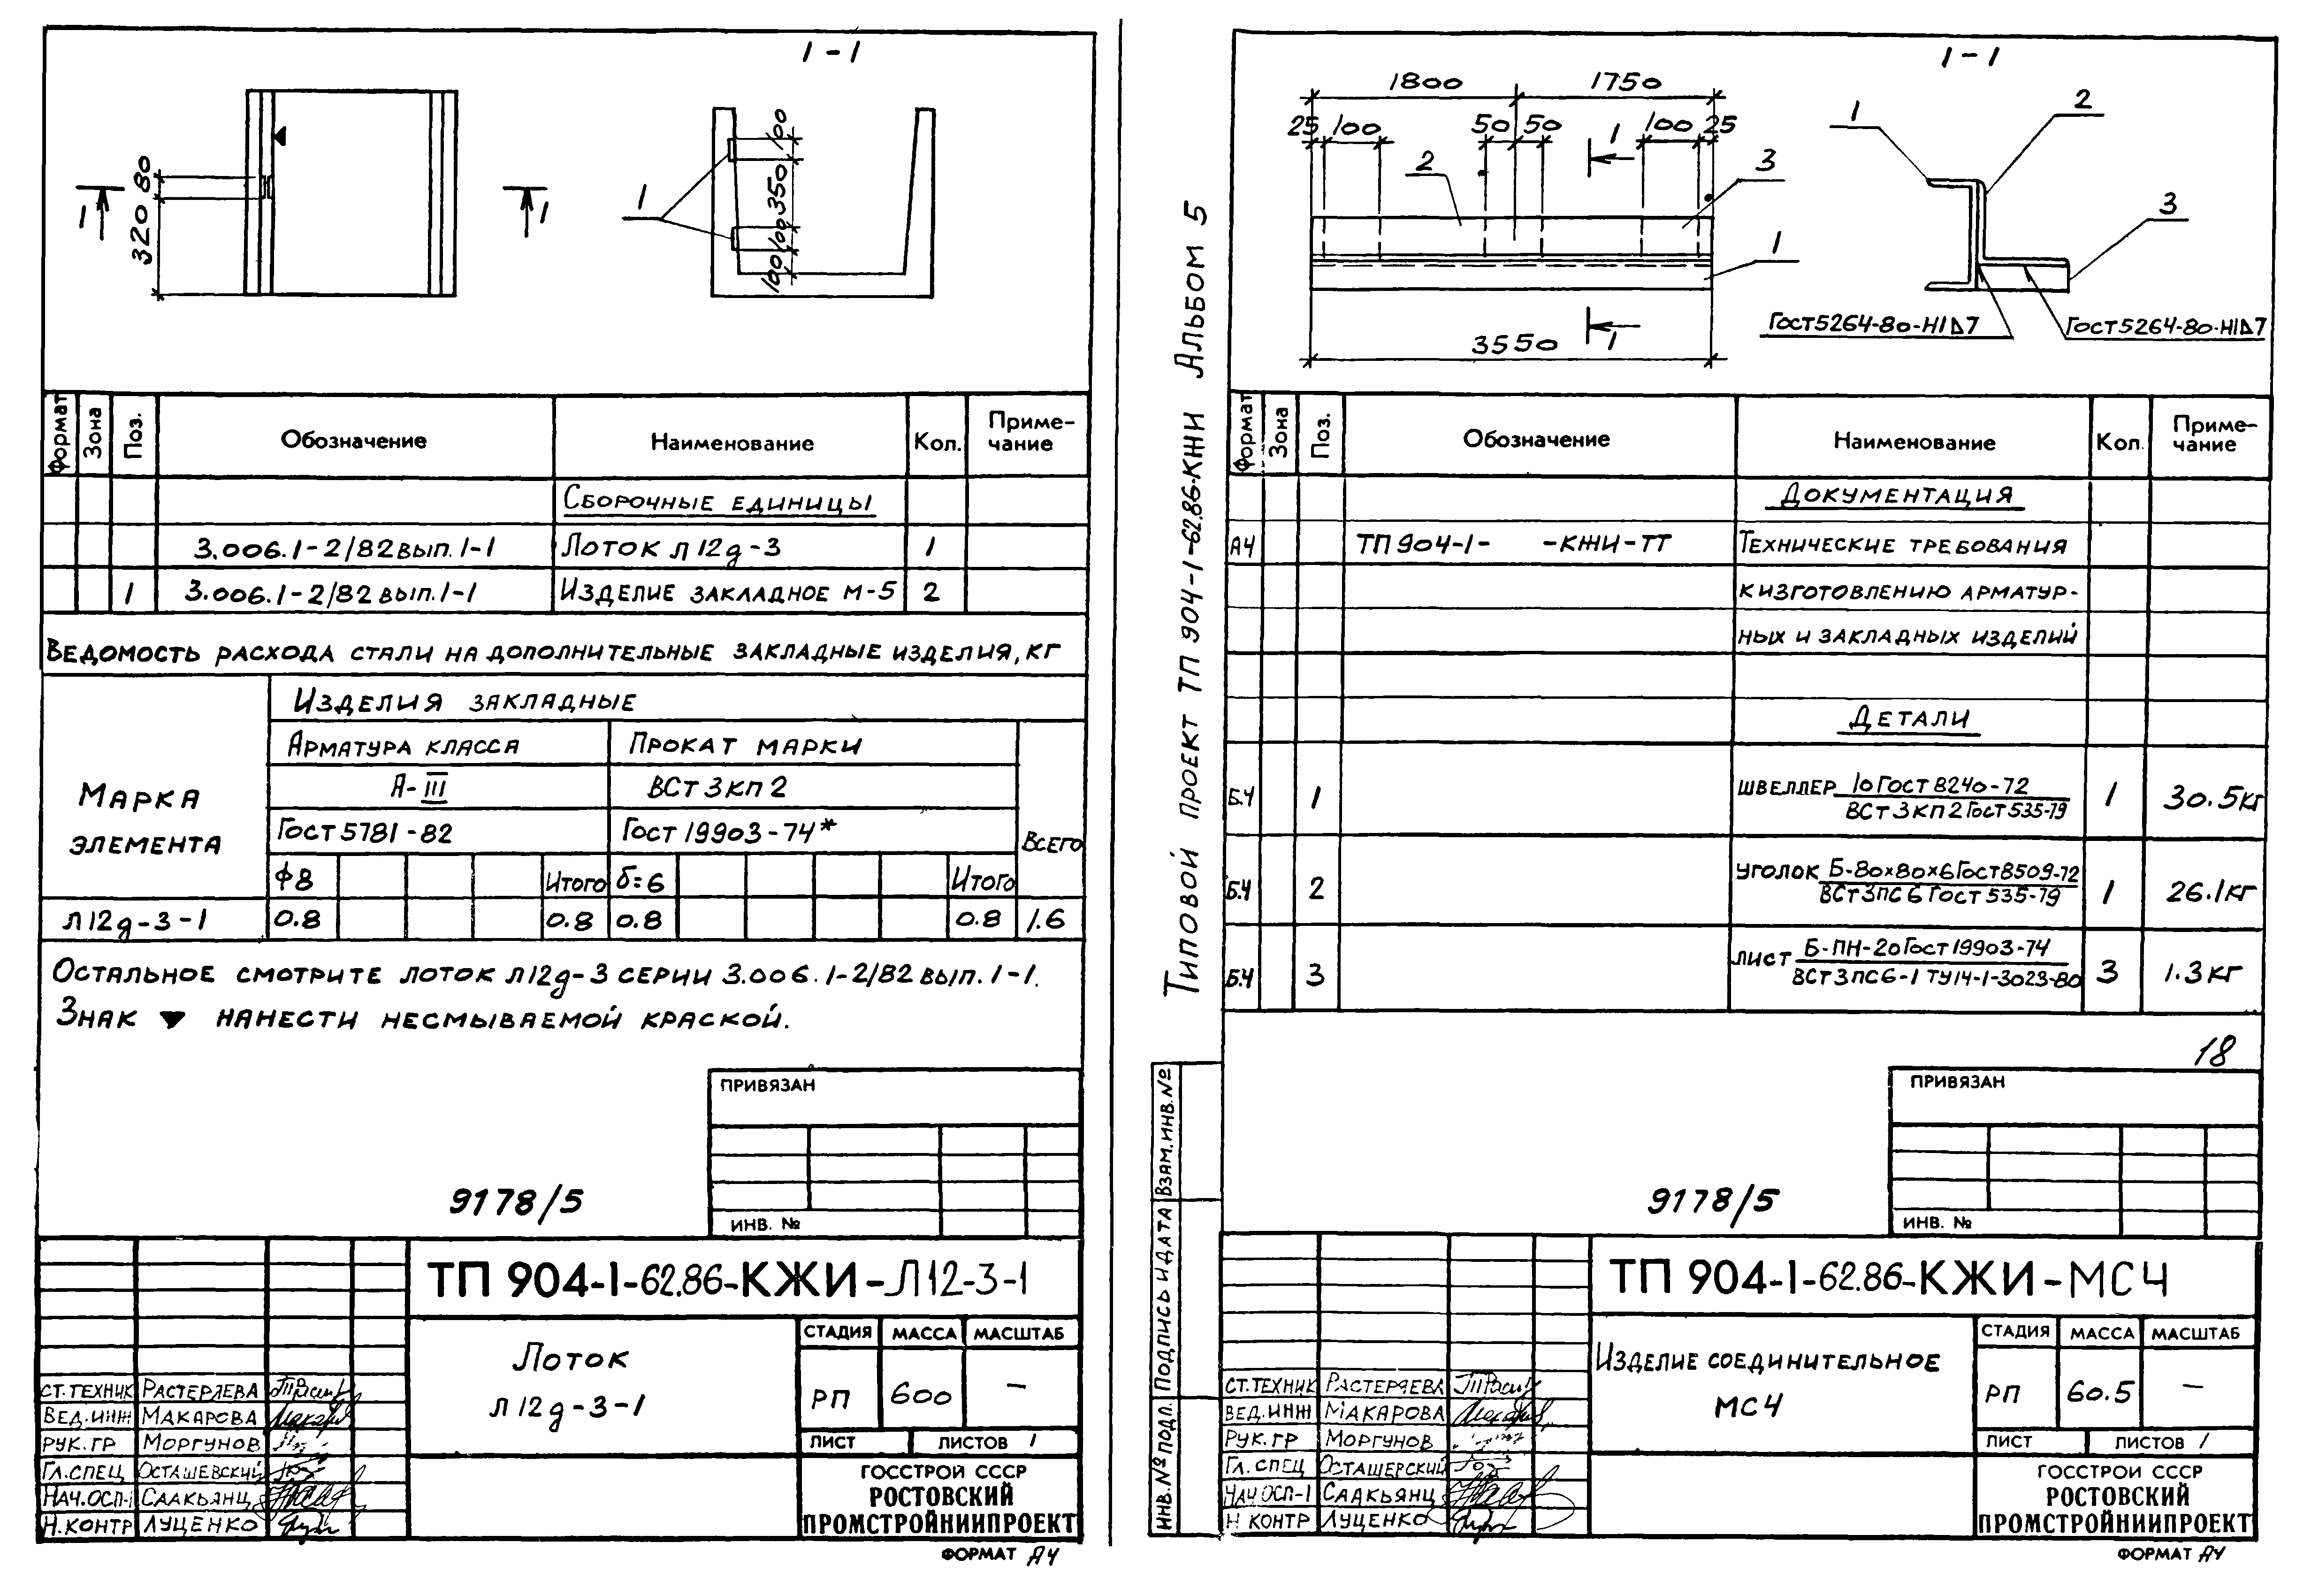 1-1
80
320
1
1
1
100
350
100
100
Формат
Зона
Поз.
Обозначение
Наименование
Кол.
Приме-
чание
Сборочные единицы
3.006.1-2/82 вып.1-1 Лоток Л12д-3 1
1 3.006.1-2/82 вып.1-1 Изделие закладное М-5 2
Ведомость расхода стали на дополнительные закладные изделия, кг
Марка
элемента
Изделия закладные
Арматура класса
Прокат марки
А-III
ВСт3кп2
Гост 5781-82
Гост 19903-74*
Всего
Ф8 Итого б=6 Итого
Л12д-3-1 0.8 0.8 0.8 0.8 1.6
Остальное смотрите лоток Л12д-3 серии 3.006.1-2/82 вып.1-1.
Знак ▼ нанести несмываемой краской.
ПРИВЯЗАН
ИНВ. №
9178/5
ТП 904-1-62.86-КЖИ-Л12-3-1
Лоток
Л12д-3-1
СТАДИЯ МАССА МАСШТАБ
РП 600 —
ЛИСТ ЛИСТОВ 1
Ст.техник Растеряева
Вед.инж Макарова
Рук.гр Моргунов
Гл.спец Осташевский
Нач.ОСП-1 Саакьянц
Н.контр Луценко
ГОССТРОЙ СССР
РОСТОВСКИЙ
ПРОМСТРОЙНИИПРОЕКТ
ФОРМАТ А4
Типовой проект ТП 904-1-62.86-КЖИ Альбом 5
1-1
1800 1750
25 100 50 50 100 25
1
2
3
1
1
3550
1
2
3
Гост5264-80-Н1⊿7
Гост5264-80-Н1⊿7
Формат
Зона
Поз.
Обозначение
Наименование
Кол.
Приме-
чание
Документация
А4 ТП 904-1- -КЖИ-ТТ Технические требования
к изготовлению арматур-
ных и закладных изделий
Детали
Б.Ч 1 Швеллер 10 Гост 8240-72 1 30.5кг
ВСт3кп2 Гост 535-79
Б.Ч 2 Уголок Б-80х80х6 Гост 8509-72 1 26.1кг
ВСт3пс6 Гост 535-79
Б.Ч 3 Лист Б-ПН-20 Гост 19903-74 3 1.3кг
ВСт3пс6-1 ТУ14-1-3023-80
18
ПРИВЯЗАН
ИНВ. №
9178/5
Взам.инв.№
Подпись и дата
Инв.№ подл.
ТП 904-1-62.86-КЖИ-МС4
Изделие соединительное
МС4
СТАДИЯ МАССА МАСШТАБ
РП 60.5 —
ЛИСТ ЛИСТОВ 1
Ст.техник Растеряева
Вед.инж Макарова
Рук.гр Моргунов
Гл.спец Осташерский
Нач ОСП-1 Саакьянц
Н контр Луценко
ГОССТРОЙ СССР
РОСТОВСКИЙ
ПРОМСТРОЙНИИПРОЕКТ
ФОРМАТ А4